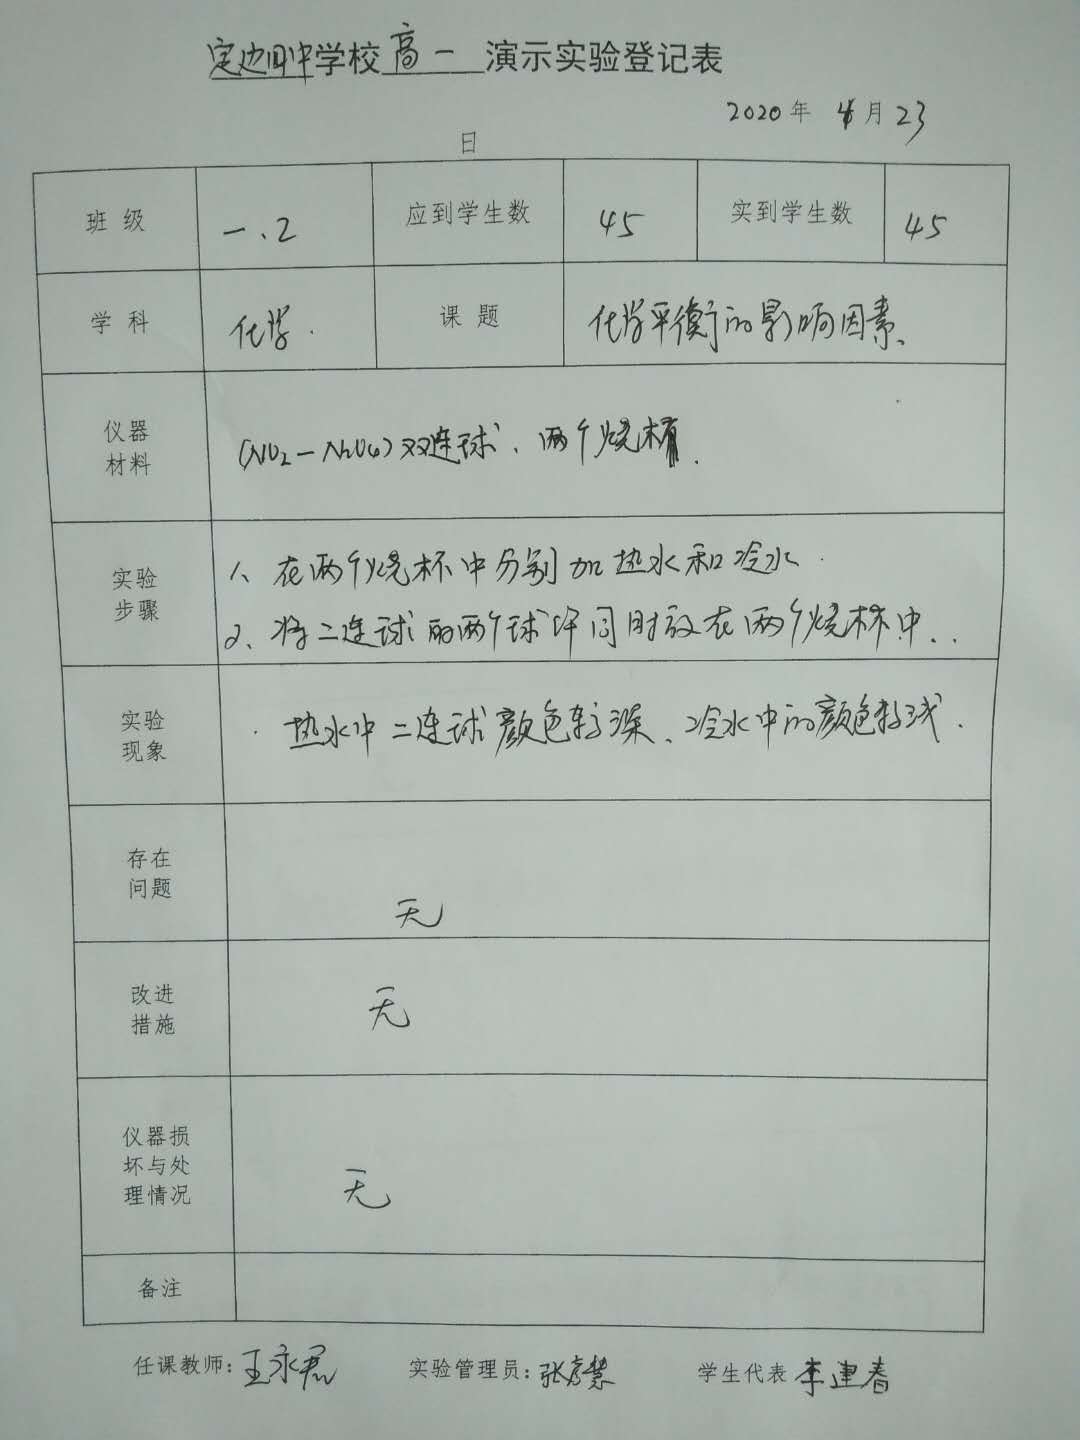 定边四中学校高一 演示实验登记表
2020年 4月23
日
班 级 一、2 应到学生数 45 实到学生数 45
学 科 化学. 课 题 化学平衡的影响因素、
仪器
材料
(NO2-N2O4)双连球、两个烧杯.
实验
步骤
1、在两个烧杯中分别加热水和冷水.
2、将二连球的两个球体同时放在两个烧杯中..
实验
现象
热水中二连球颜色较深、冷水中的颜色较浅.
存在
问题
无
改进
措施
无
仪器损
坏与处
理情况
无
备注
任课教师:王永君 实验管理员:张慧 学生代表 李建春